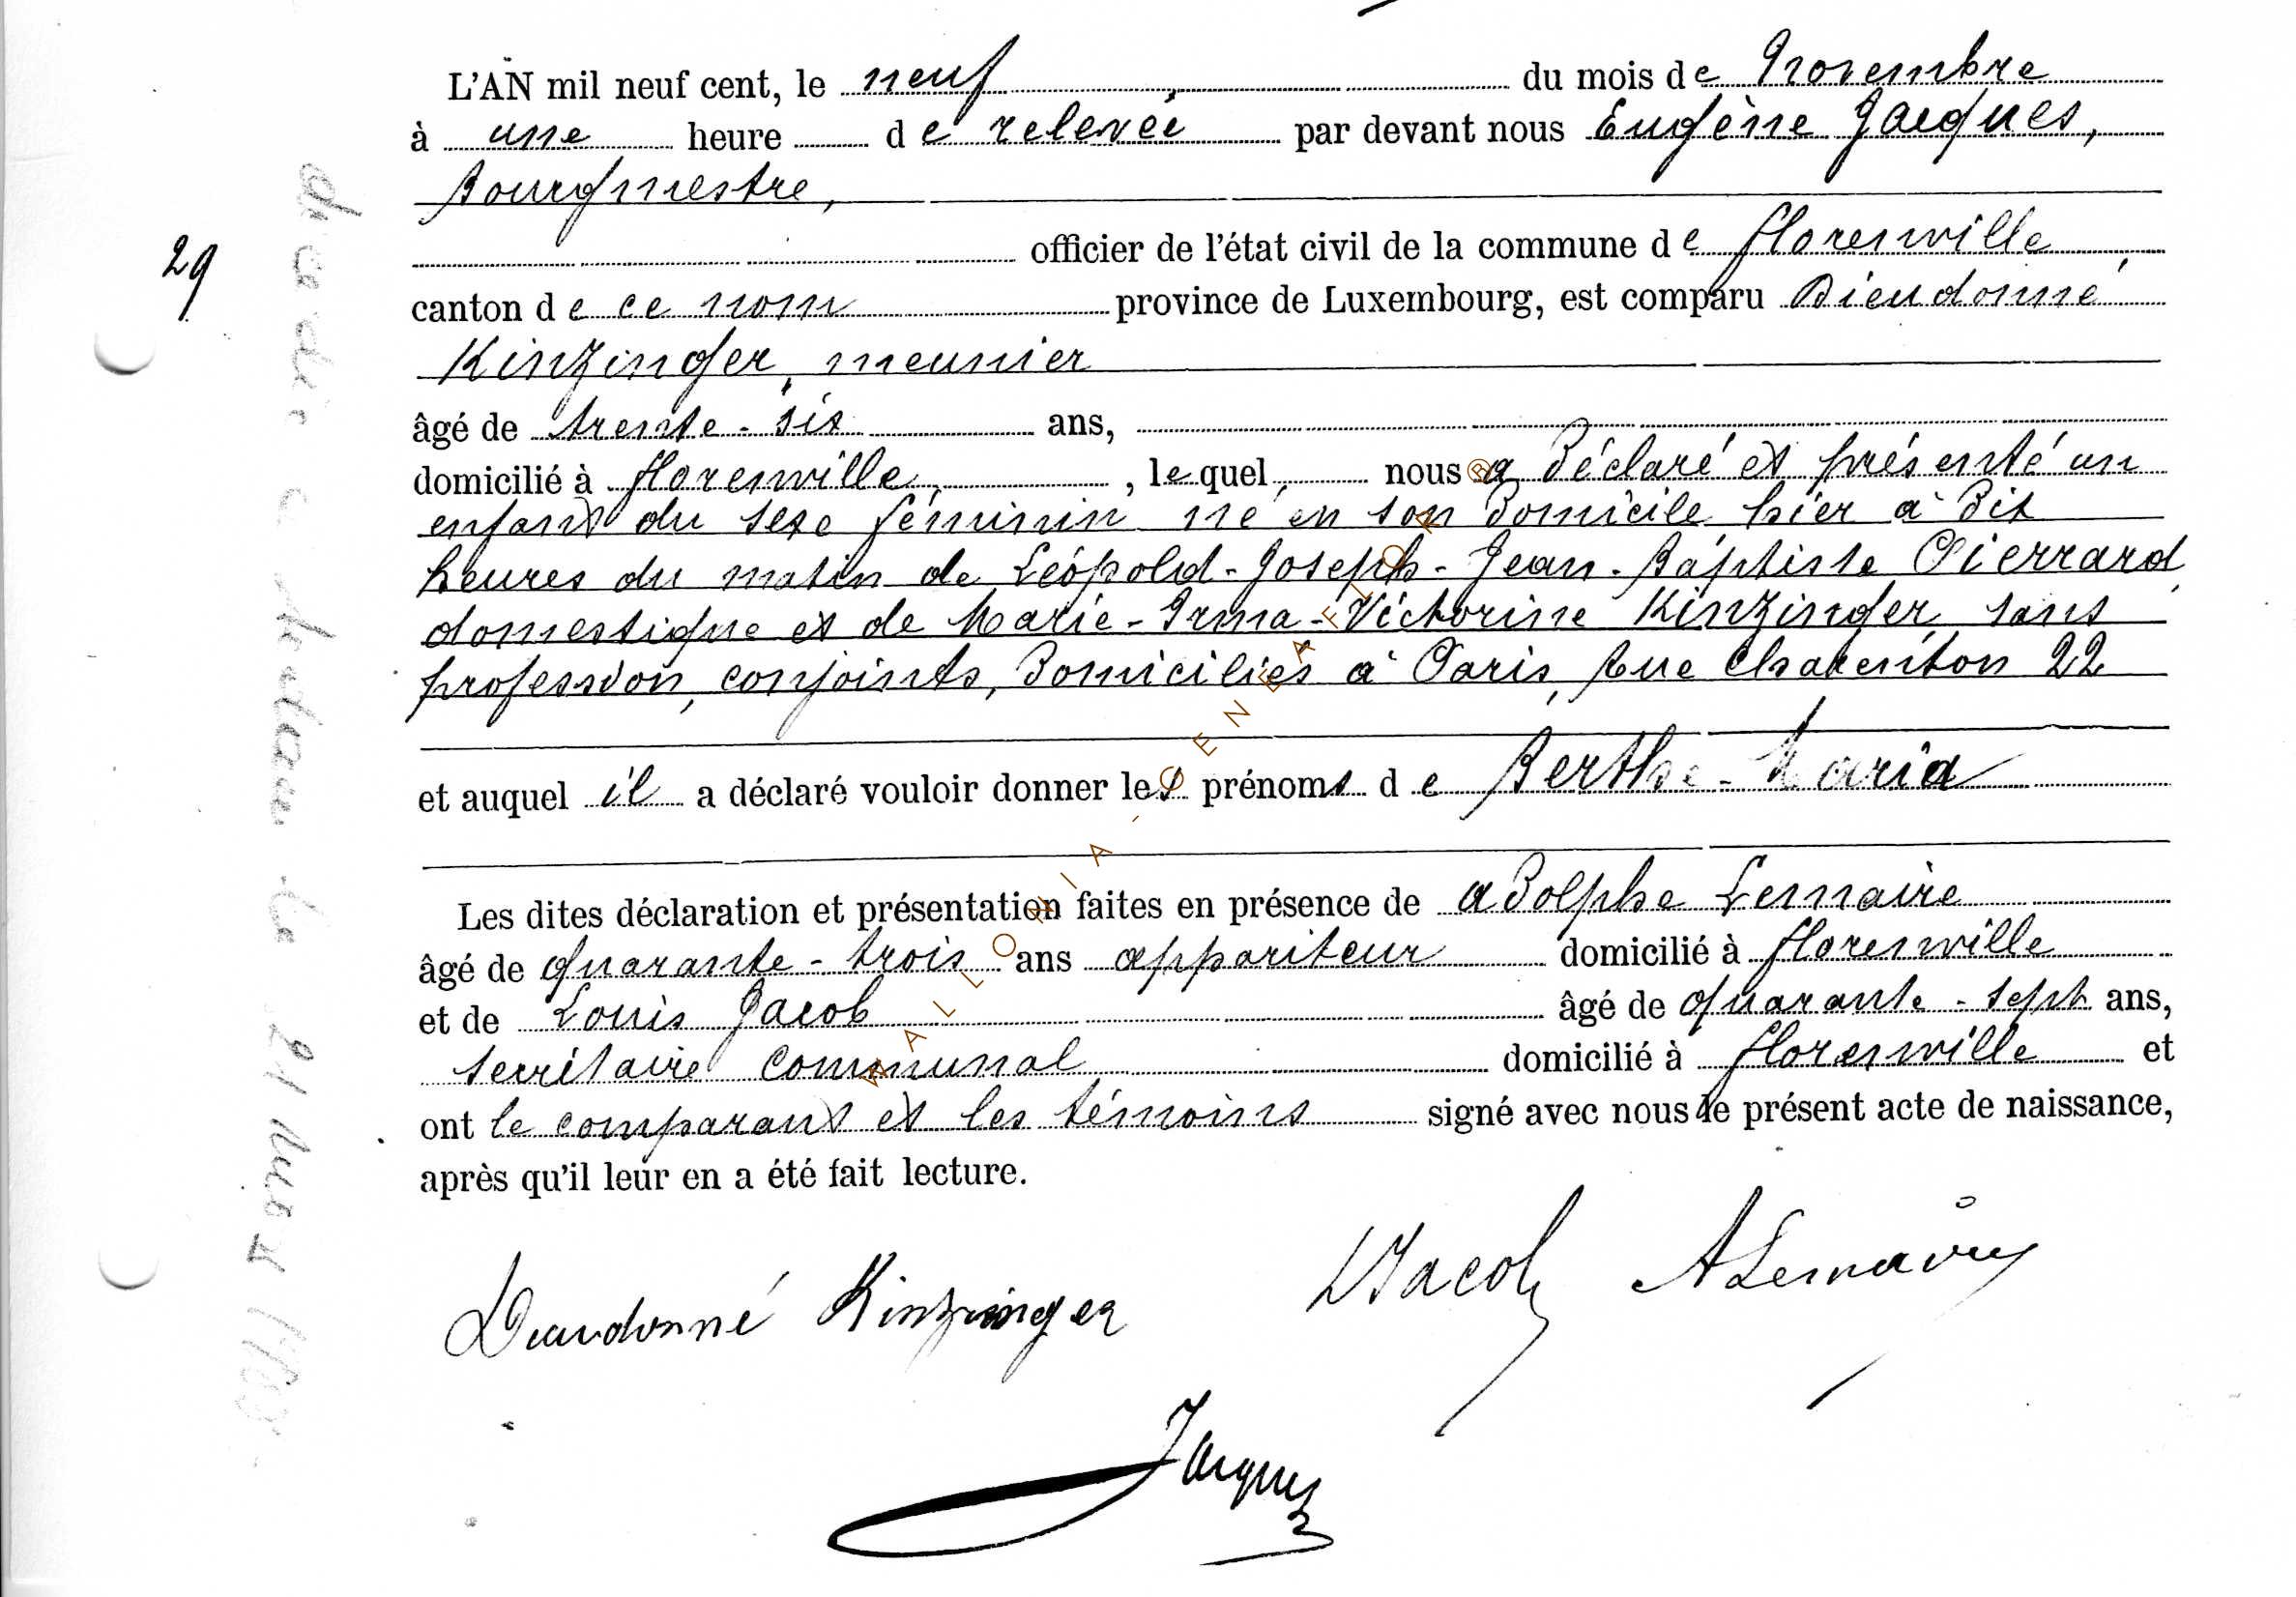 L'AN mil neuf cent, le neuf du mois de Novembre
à une heure de relevée par devant nous Eugène Jacques,
Bourgmestre,
officier de l'état civil de la commune de Florenville,
29
canton de ce nom province de Luxembourg, est comparu Dieudonné
Kinzinger, meunier
âgé de trente-six ans,
domicilié à Florenville, lequel, nous a déclaré et présenté un
enfant du sexe féminin né en son domicile hier à dix
heures du matin de Léopold-Joseph-Jean-Baptiste Pierrard,
domestique et de Marie-Irma-Victorine Kinzinger, sans
profession, conjoints, domiciliés à Paris, Rue Charenton 22
et auquel il a déclaré vouloir donner les prénoms de Berthe-Maria
Les dites déclaration et présentation faites en présence de Adolphe Lemaire
âgé de quarante-trois ans appariteur domicilié à Florenville
et de Louis Jacob âgé de quarante-sept ans,
secrétaire communal domicilié à Florenville et
ont le comparant et les témoins signé avec nous le présent acte de naissance,
après qu'il leur en a été fait lecture.
Dieudonné Kinzinger LJacob ALemaire
Jacques
WALLONIA-GENEAFLOR ®